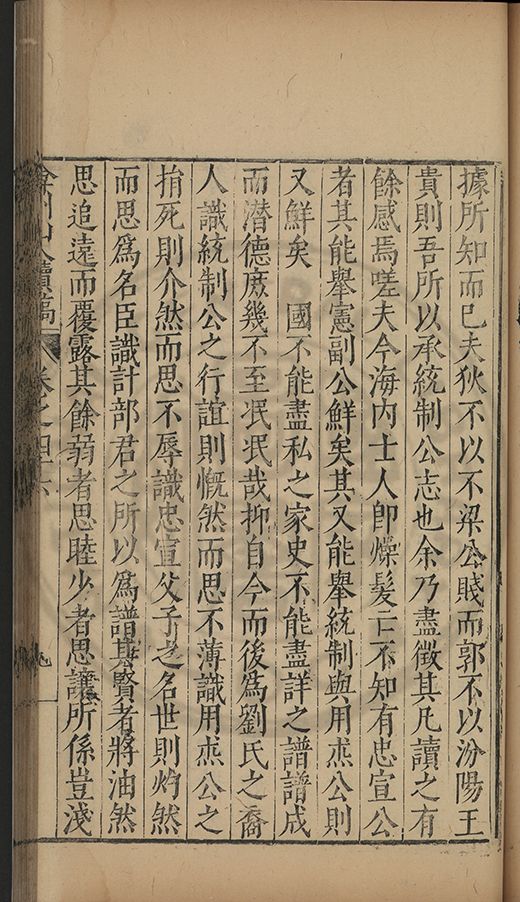 據所知而已夫狄不以不梁公賤而郭不以汾陽王
貴則吾所以承統制公志也余乃盡徵其凡讀之有
餘感焉嗟夫今海內士人卽燥髮亡不知有忠宣公
者其能舉憲副公鮮矣其又能舉統制與用烝公則
又鮮矣　國不能盡私之家史不能盡詳之譜譜成
而潛德庶幾不至泯泯哉抑自今而後爲劉氏之裔
人識統制公之行誼則慨然而思不薄識用烝公之
捐死則介然而思不辱識忠宣父子之名世則灼然
而思爲名臣識計部君之所以爲譜其賢者將油然
思追遠而覆露其餘弱者思睦少者思讓所係豈淺
弇州山人續稿　卷之四十六　九